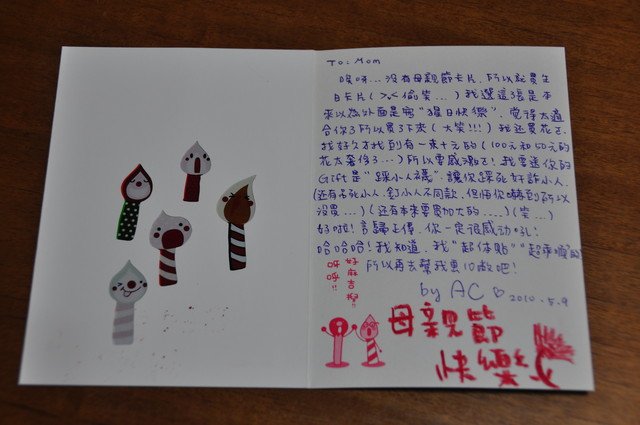 To: Mom
哎呀...沒有母親節卡片,所以就買生
日卡片(>.< 偷笑...)我選這張是本
來以為外面是寫"猩日快樂",覺得太適
合你了所以買了下來(大笑!!!)我还買花已,
找好久才找到有一束十元的(100元和50元的
花太奢侈了...)所以要感激已,我要送你的
Gift是"踩小人襪",讓你踩死奸詐小人,
(还有吊死小人,釘小人不同款,但怕你嚇到所以
沒買...)(还有本來要買加大的....)(笑...)
好啦!言歸正傳,你一定很感动吼!
哈哈哈!我知道,我"超体貼""超乖順"的
所以再去幫我惠10敞吧!
by AC ♡ 2010.5.9
好麻吉喔!!
呀呼!!
母親節
快樂